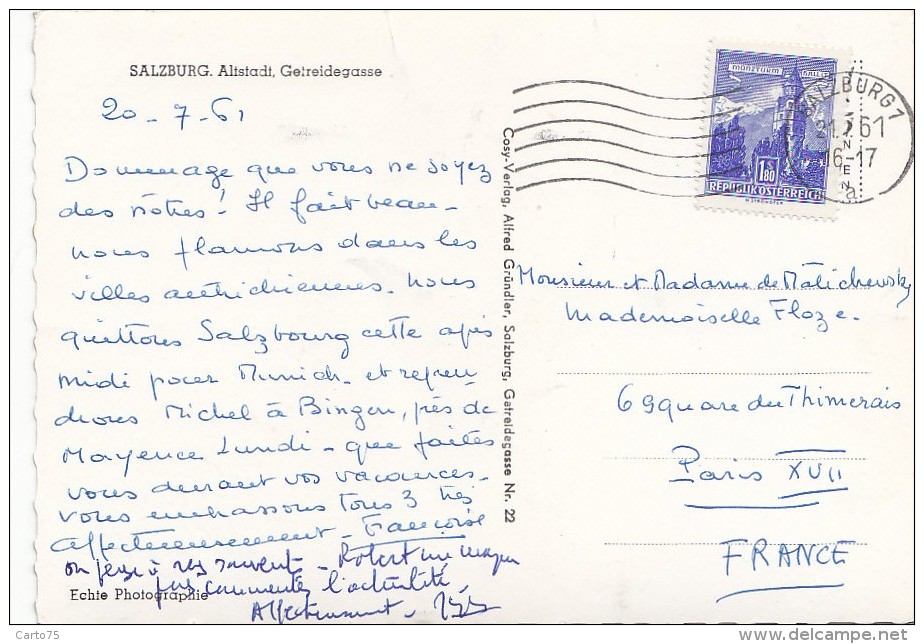 SALZBURG. Altstadt, Getreidegasse
20-7-61
Dommage que vous ne soyez
des nôtres! Il fait beau-
nous flanons dans les
villes autrichiennes. nous
quittons Salzbourg cette après
midi pour Munich- et repren-
drons Michel à Bingen, près de
Mayence Lundi- que faites
vous durant vos vacances-
vous embrassons tous 3 très
affectueusement- Françoise
on pense à vs souvent- Robert
pas commenter l'actualité,
Affectueusement-
Echte Photographie
Cosy-Verlag, Alfred Gründler, Salzburg, Getreidegasse Nr. 22
MÜNZTURM HALL
1.80
REPUBLIK ÖSTERREICH
SALZBURG 1
21.7.61
16-17
a
Monsieur et Madame de Malichewsky
Mademoiselle Floze.
6 Square du Thimerais
Paris XVII
FRANCE
Carto75
delcampe.net